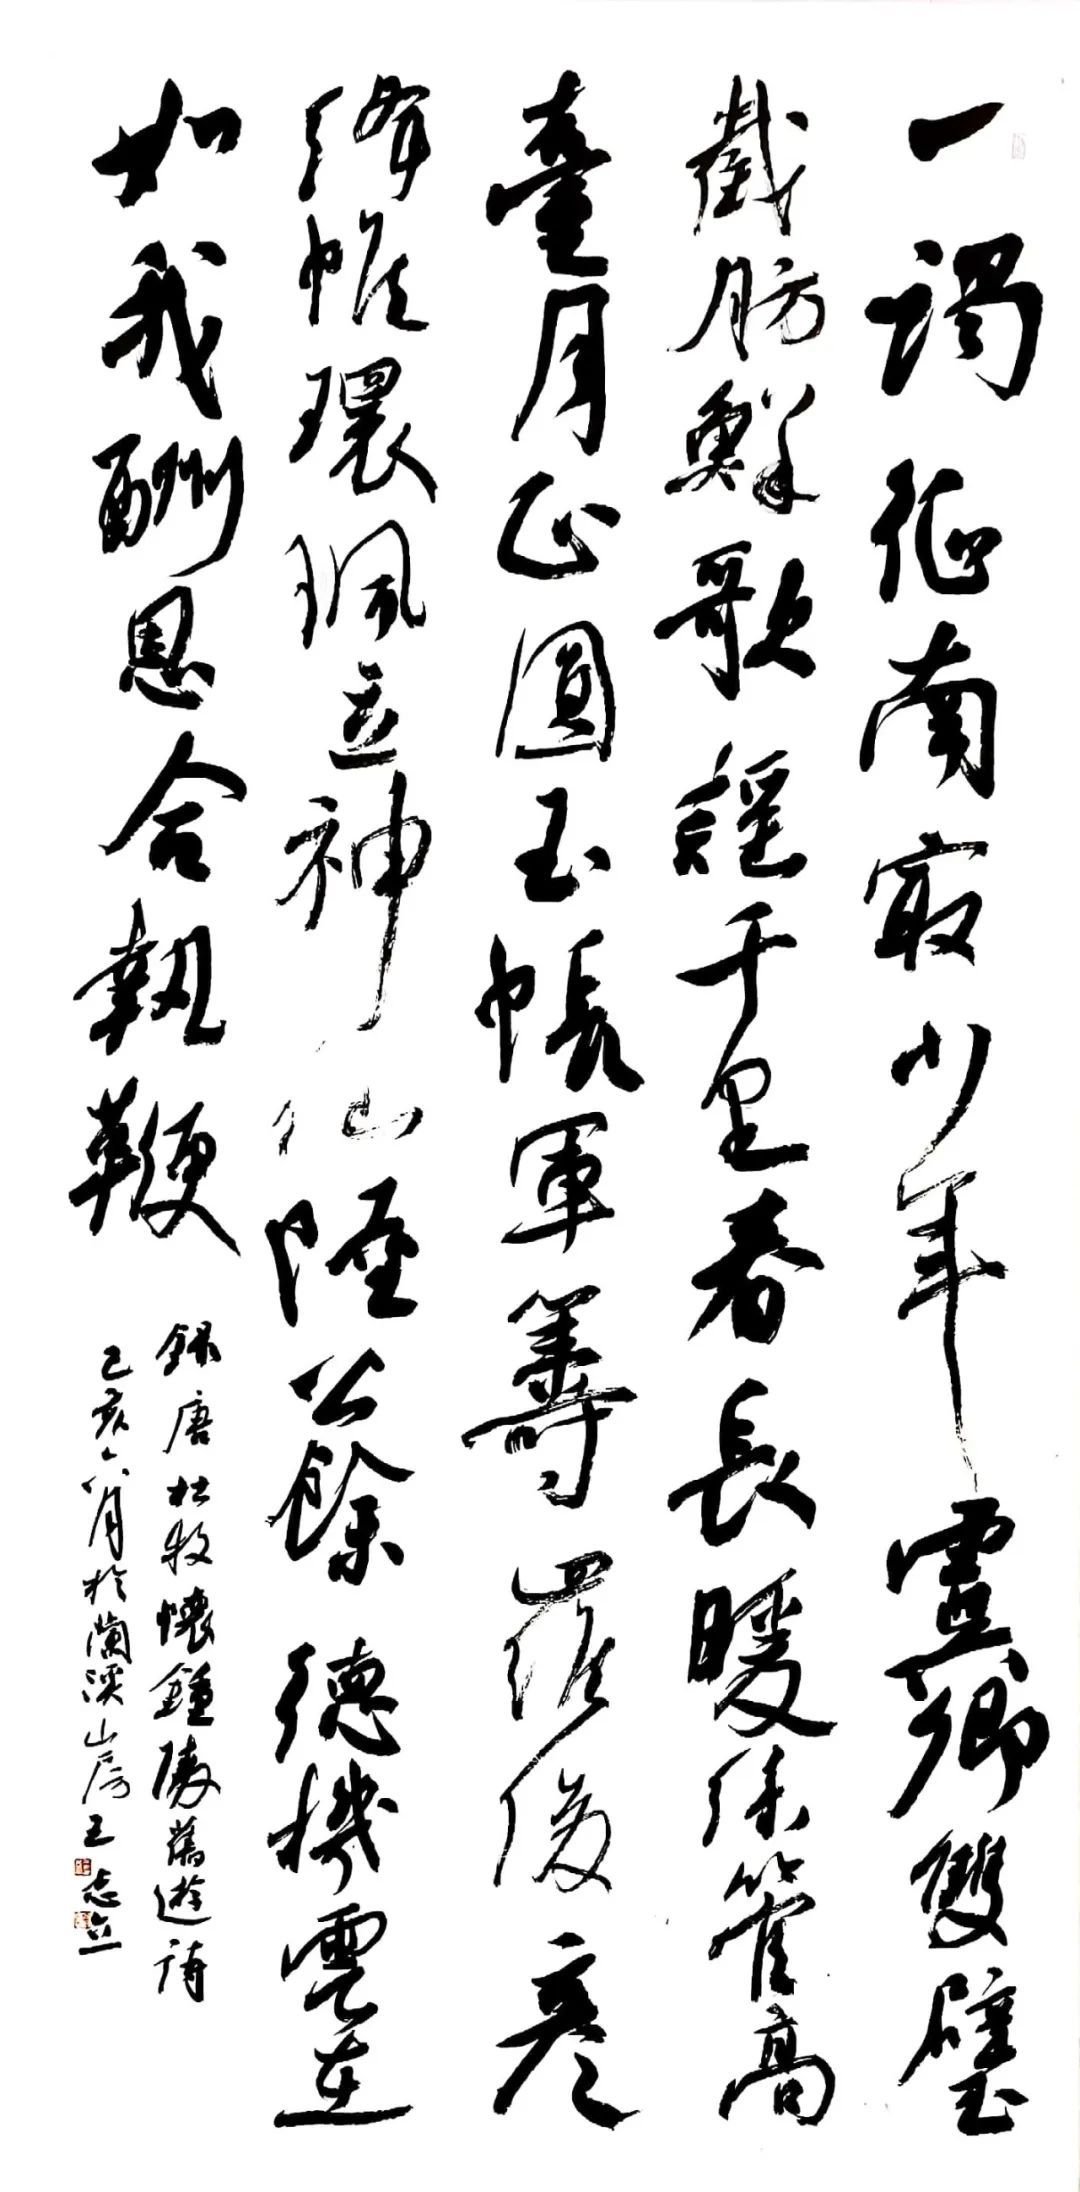 一謁征南冣少年虞卿雙璧
截肪鮮歌謠千里春長暖絲管高
臺月正圓玉帳軍籌羅俊彥
絳帷環珮立神仙陸公餘德機雲在
如我酬恩合執鞭
録唐杜牧懷鍾陵舊遊詩
己亥六月於蘭溪山房王志立